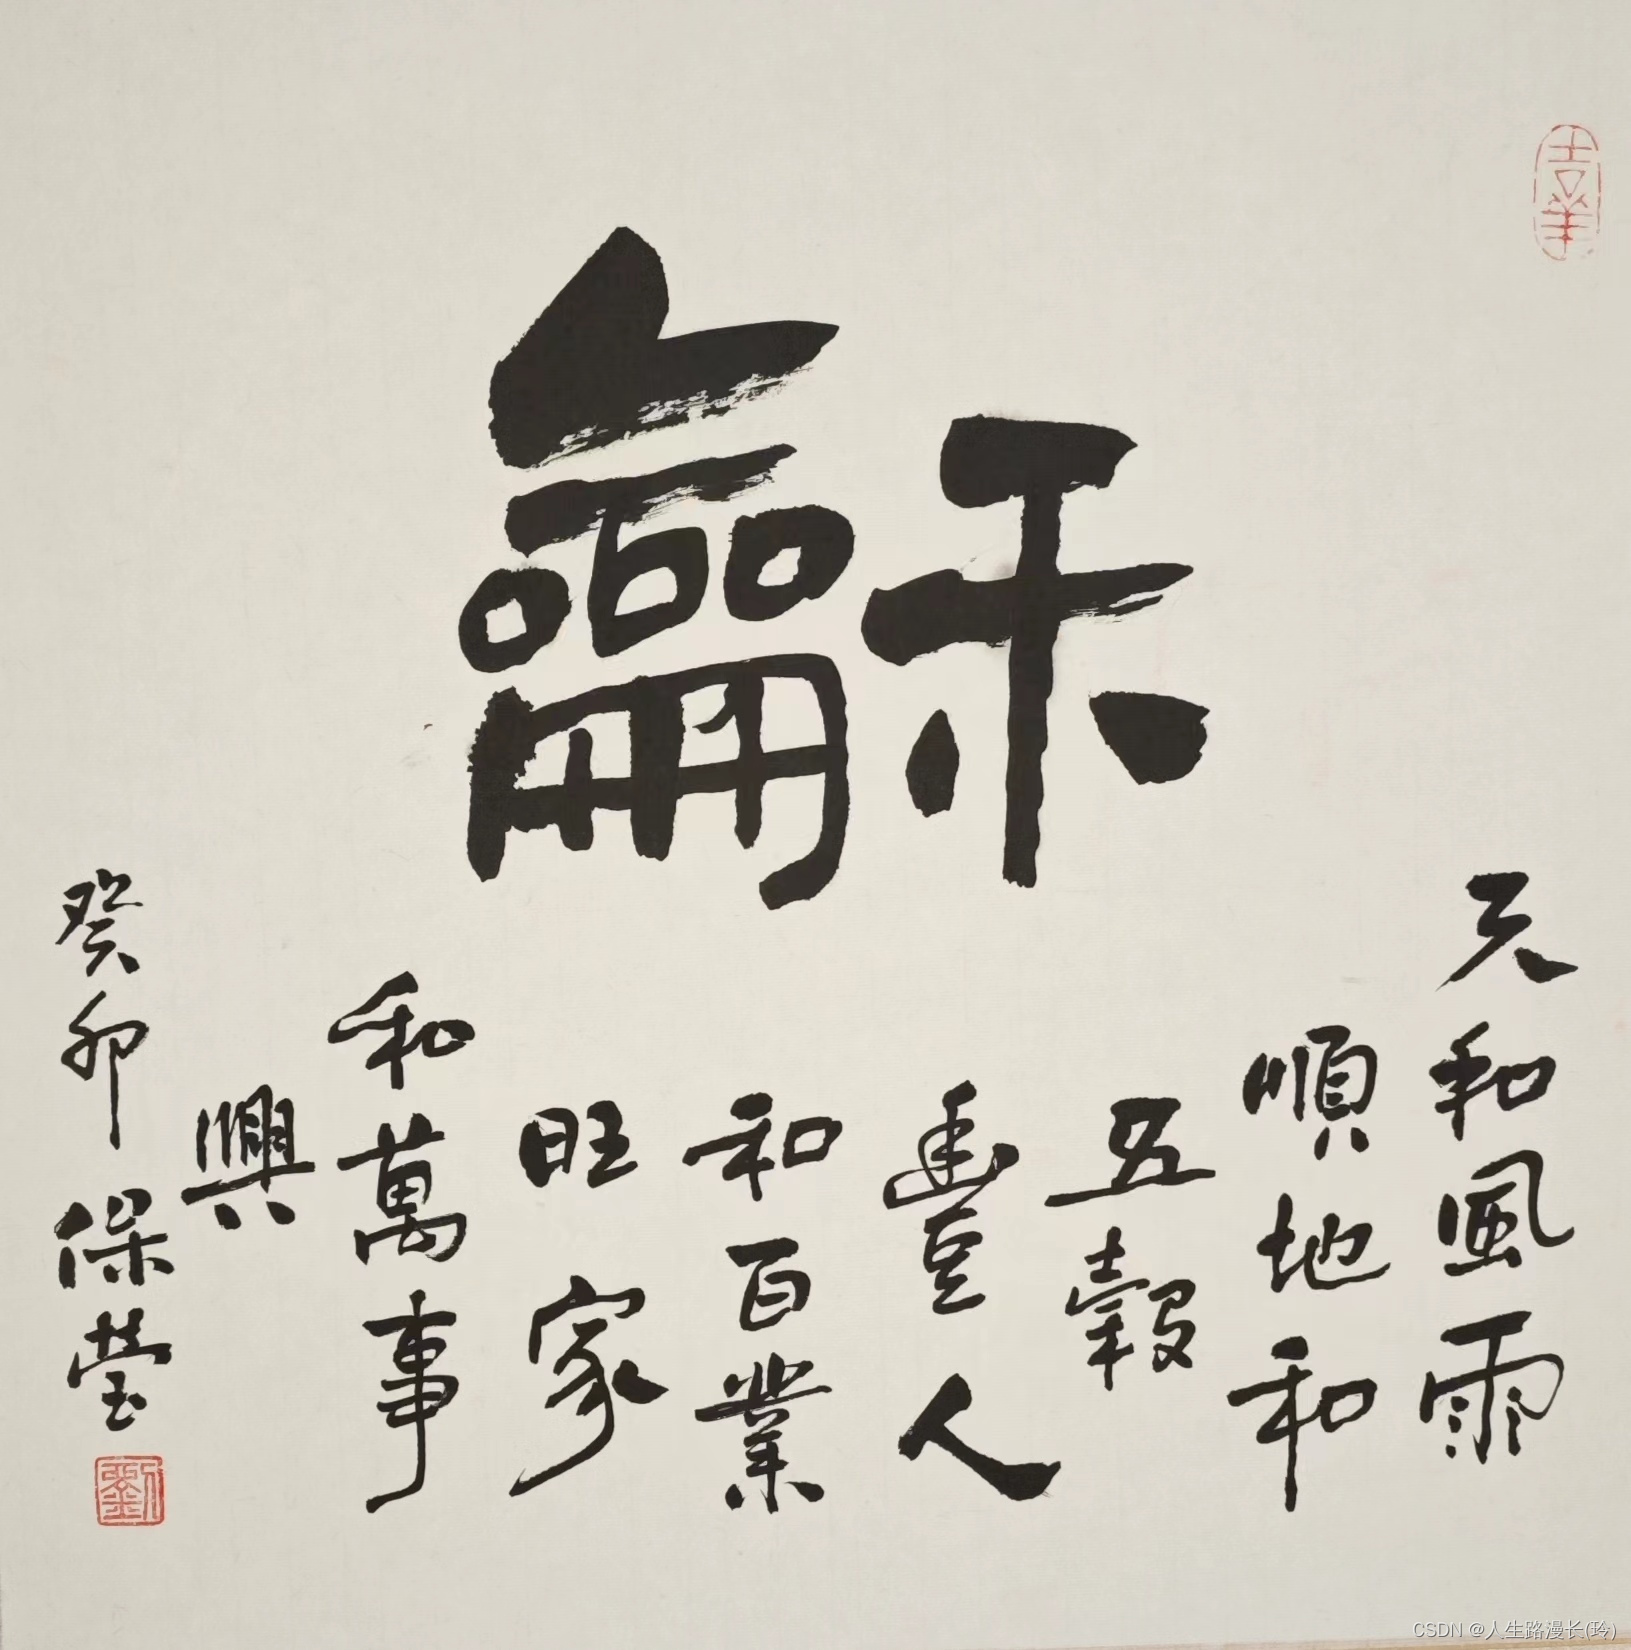 龢
天和風雨
順地和
五穀
豐人
和百業
旺家
和萬事
興
癸卯 保莹
劉
CSDN @人生路漫长(玲)